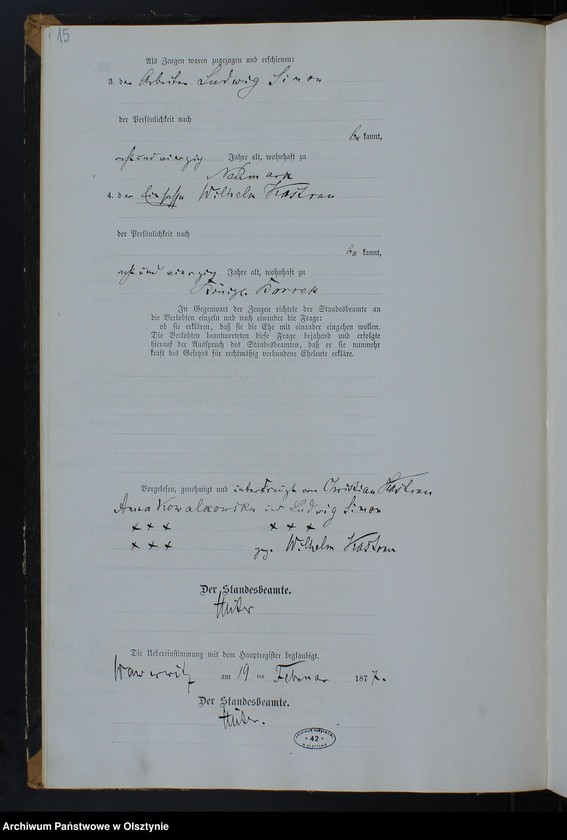 15
Als Zeugen waren zugezogen und erschienen:
3. der Arbeiter Ludwig Simon
der Persönlichkeit nach
be kannt,
acht und vierzig Jahre alt, wohnhaft zu
Neumark
4. der Wilhelm Kastrau
der Persönlichkeit nach
be kannt,
acht und vierzig Jahre alt, wohnhaft zu
Königl. Borrek
In Gegenwart der Zeugen richtete der Standesbeamte an
die Verlobten einzeln und nach einander die Frage:
ob sie erklären, daß sie die Ehe mit einander eingehen wollen.
Die Verlobten beantworteten diese Frage bejahend und erfolgte
hierauf der Ausspruch des Standesbeamten, daß er sie nunmehr
kraft des Gesetzes für rechtmäßig verbundene Eheleute erkläre.
Vorgelesen, genehmigt und unterkreuzt von Christian Kastrau
Anna Kowalkowska und Ludwig Simon
+ + + + + +
+ + + gez. Wilhelm Kastrau
Der Standesbeamte.
Die Uebereinstimmung mit dem Hauptregister beglaubigt.
am 19 ten Februar 1877.
Der Standesbeamte.
42
Archiwum Państwowe w Olsztynie